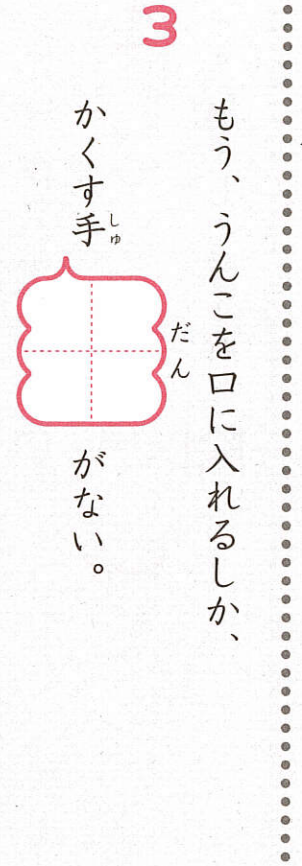 3
もう、うんこを口に入れるしか、
かくす手しゅ だん がない。